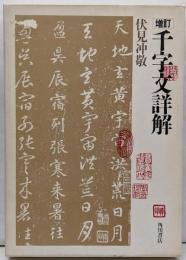 増訂
千字文詳解
伏見冲敬
天地玄黄宇宙洪荒日月
天地玄黄宇宙洪荒日月
盈昃辰宿列張寒来暑往
盈昃辰宿列張寒来暑往
角川書店